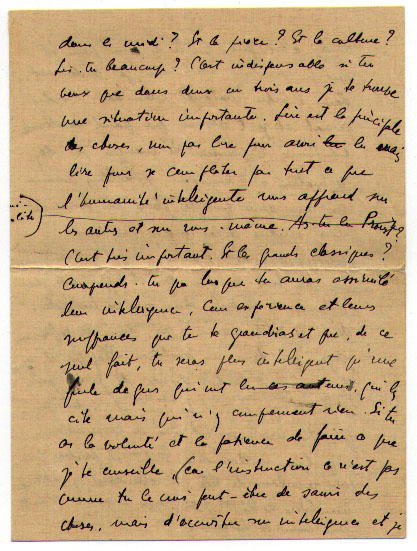 dans le midi ? Et la pièce ? Et la culture ?
Lis-tu beaucoup ? C'est indispensable si tu
veux que dans deux ou trois ans je te trouve
une situation importante. Lire est la principale
des choses, non pas lire pour avoir lu mais
lire pour se compléter par tout ce que
l'humanité intelligente nous apprend sur
les autres et sur nous-même. As-tu lu Proust ?
C'est très important. Et les grands classiques ?
Comprends-tu pas lorsque tu auras assimilé
leur intelligence, leur expérience et leurs
souffrances que tu te grandiras et que, de ce
seul fait, tu seras plus intelligent qu'une
foule de gens qui ont lu ces auteurs, qui les
cite mais qui n'y comprennent rien. Si tu
as la volonté et la patience de faire ce que
je te conseille, (car l'instruction ce n'est pas
comme tu le crois peut-être de savoir des
choses, mais d'accroître son intelligence et je